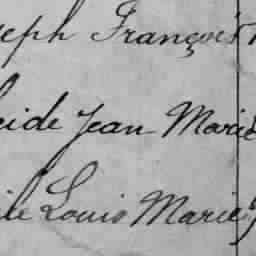 seph François
eide Jean Marie
ile Louis Marie